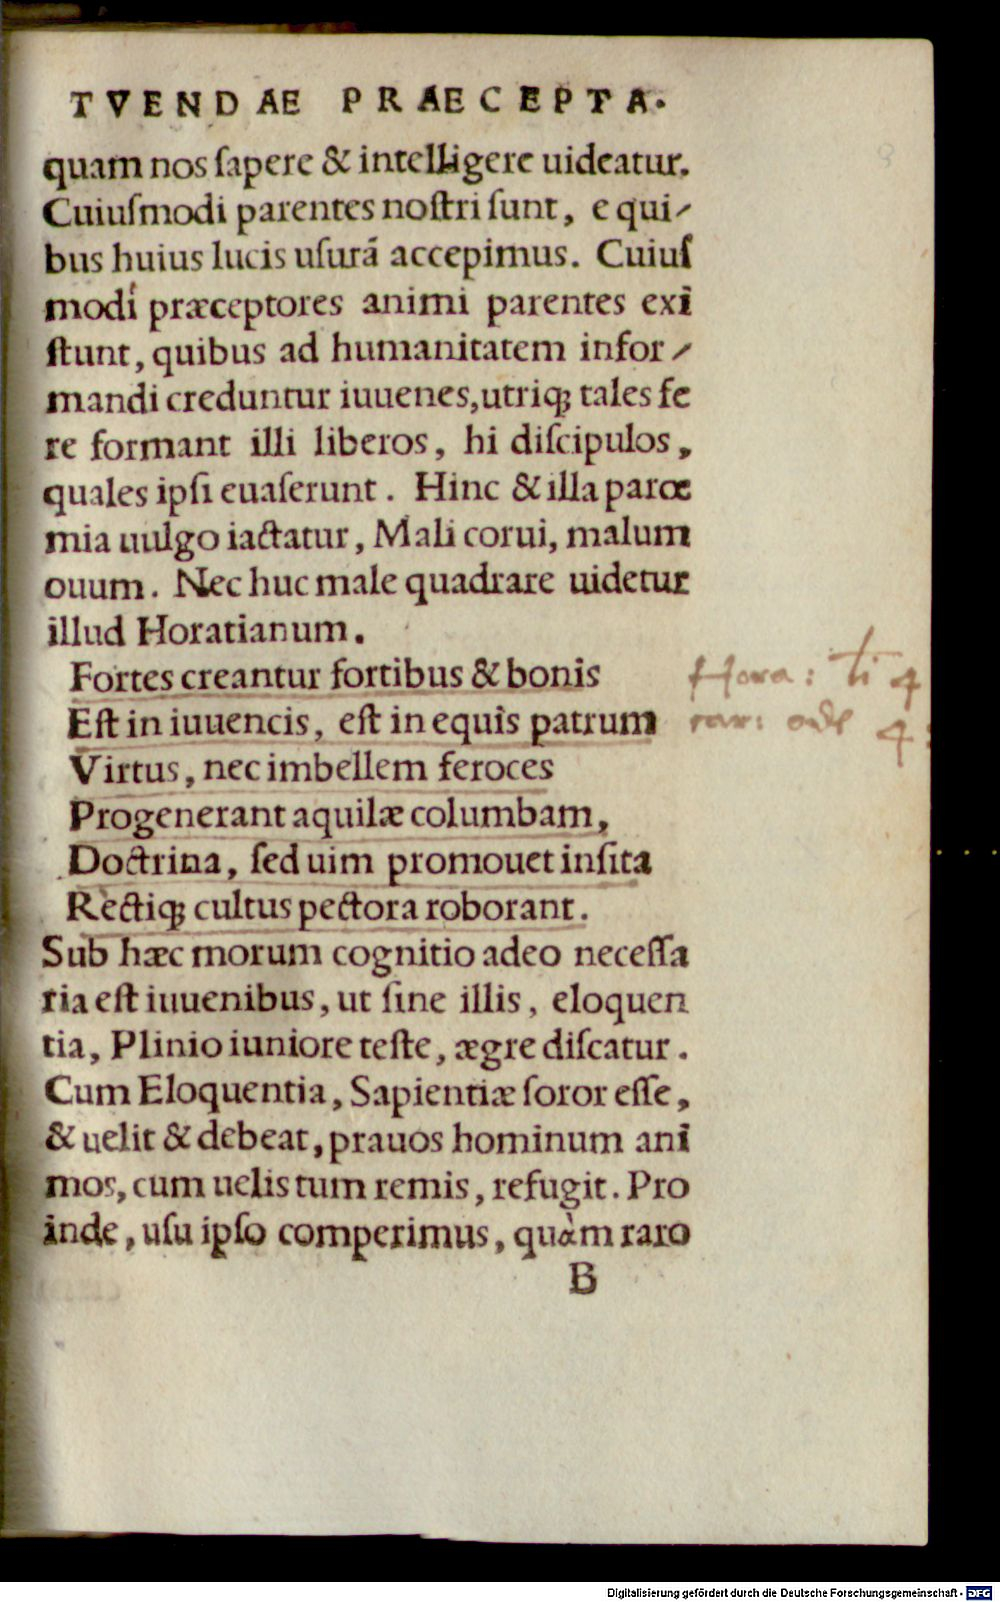 TVENDAE PRAECEPTA.
quam nos ſapere & intelligere uideatur.
Cuiuſmodi parentes noſtri ſunt, e qui-
bus huius lucis uſurā accepimus. Cuiuſ
modi præceptores animi parentes exi
ſtunt, quibus ad humanitatem infor-
mandi creduntur iuuenes, utriqꝫ tales fe
re formant illi liberos, hi diſcipulos,
quales ipſi euaſerunt. Hinc & illa parœ
mia uulgo iactatur, Mali corui, malum
ouum. Nec huc male quadrare uidetur
illud Horatianum.
Fortes creantur fortibus & bonis
Eſt in iuuencis, eſt in equis patrum
Virtus, nec imbellem feroces
Progenerant aquilæ columbam,
Doctrina, ſed uim promouet inſita
Rectiqꝫ cultus pectora roborant.
Hora: li 4
car: ode 4:
Sub hæc morum cognitio adeo neceſſa
ria eſt iuuenibus, ut ſine illis, eloquen
tia, Plinio iuniore teſte, ægre diſcatur.
Cum Eloquentia, Sapientiæ ſoror eſſe,
& uelit & debeat, prauos hominum ani
mos, cum uelis tum remis, refugit. Pro
inde, uſu ipſo comperimus, quàm raro
B
Digitalisierung gefördert durch die Deutsche Forschungsgemeinschaft - DFG